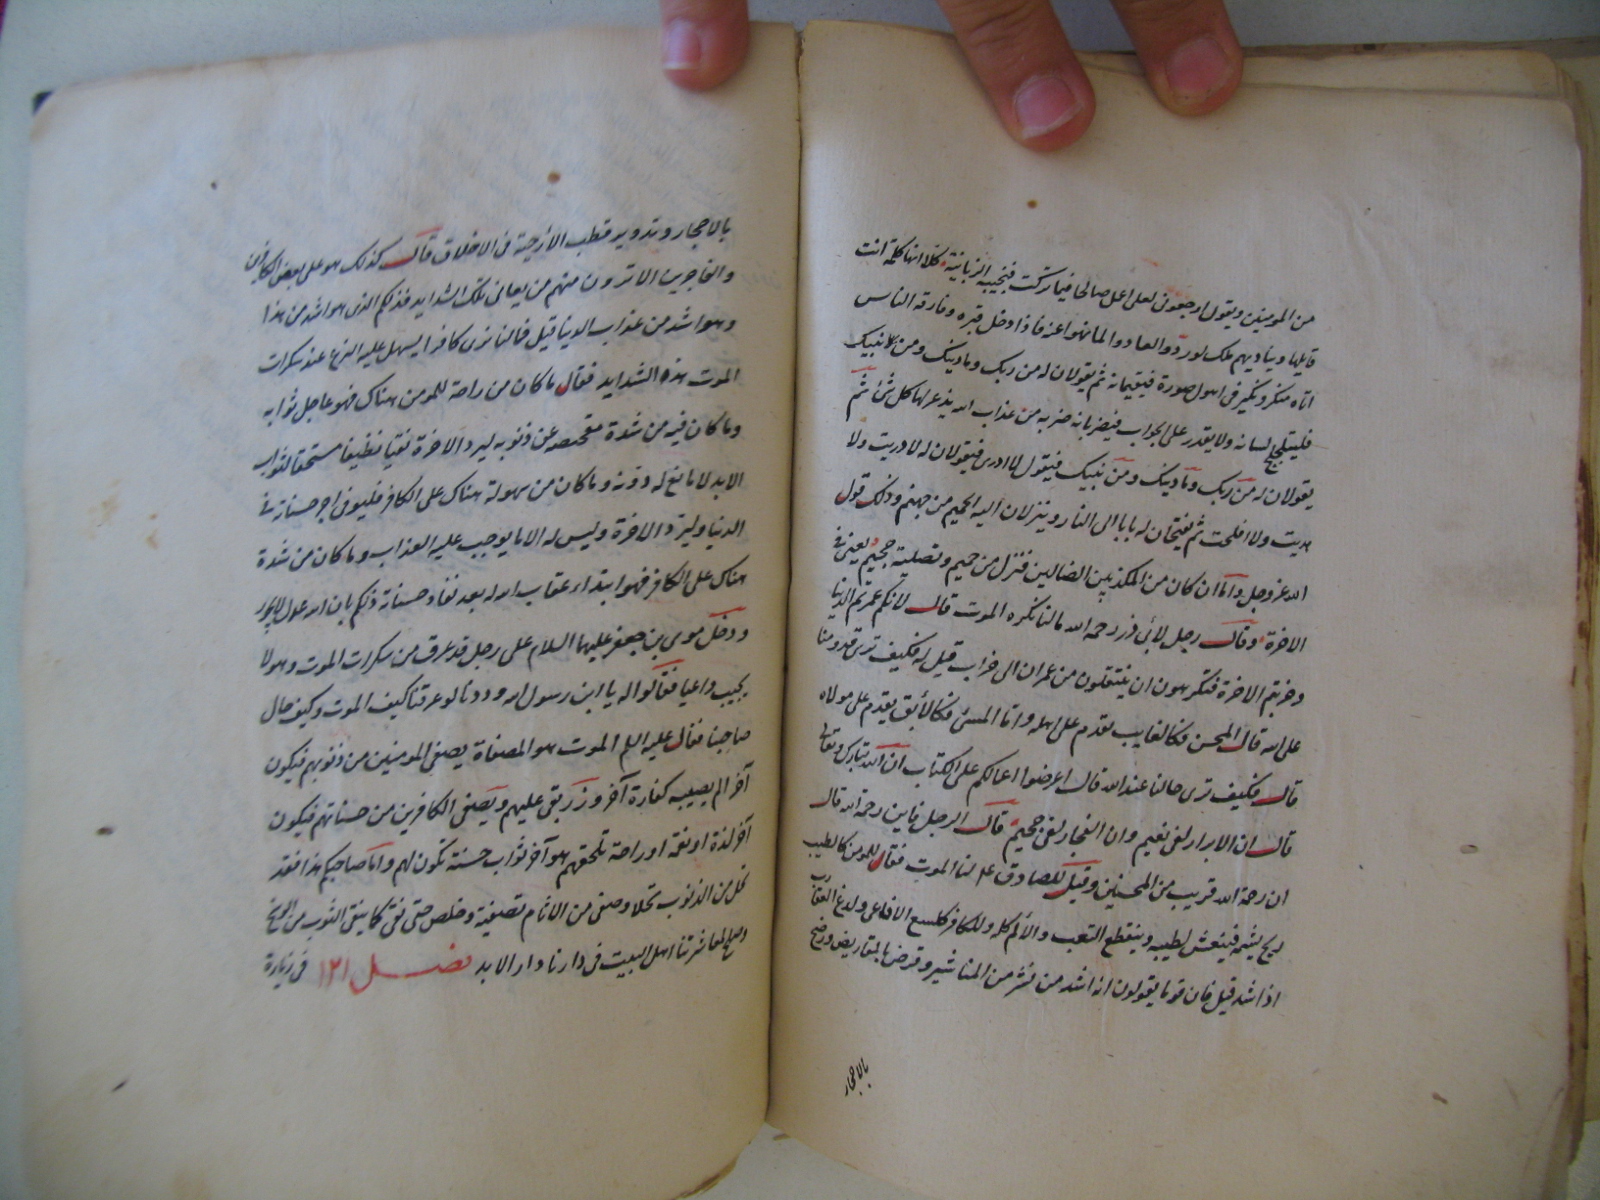 من المومنین ویقول ارجعونی لعلی اعمل صالحا فیما ترکت فتجیبه الزبانیة کلا انها کلمة انت
قایلها وینادیهم ملک لو ردوا لعادوا لما نهوا عنه فاذا دخل قبره وفارقه الناس
اتاه منکر ونکیر فی اهول صورة فیقیمانه ثم یقولان له من ربک وما دینک ومن نبیک
فیتلجلج لسانه ولا یقدر علی الجواب فیضربانه ضربه من عذاب الله یذعر لها کل شئ ثم
یقولان له من ربک وما دینک ومن نبیک فیقول لا ادری فیقولان له لا دریت ولا
هدیت ولا افلحت ثم یفتحان له بابا الی النار وینزلان الیه الحمیم من جهنم وذلک قول
الله عز وجل واما ان کان من المکذبین الضالین فنزل من حمیم وتصلیة جحیم یعنی فی
الاخرة وقال رجل لابی ذر رحمه الله ما لنا نکره الموت قال لانکم عمرتم الدنیا
وخربتم الاخرة فتکرهون ان ینتقلون من عمران الی خراب قیل له فکیف تری قدومنا
علی الله قال المحسن فکالغایب یقدم علی اهله واما المسئ فکالابق یقدم علی مولاه
قال فکیف تری حالنا عند الله قال اعرضوا اعمالکم علی الکتاب ان الله تبارک وتعالی
قال ان الابرار لفی نعیم وان الفجار لفی جحیم قال الرجل فاین رحمة الله قال
ان رحمة الله قریب من المحسنین وقیل للصادق صف لنا الموت فقال للمومن کاطیب
ریح یشمه فینعس لطیبه وینقطع التعب والالم کله وللکافر کلسع الافاعی ولدغ العقارب
او اشد قیل فان قوما یقولون انه اشد من نشر من المناشیر وقرض بالمقاریض ورضخ
بالاحجار
بالاحجار وتدویر قطب الارحیة فی الاحداق قال کذلک هو علی بعض الکافرین
والفاجرین الا ترون منهم من یعانی تلک الشداید فذلکم الذی هو اشد من هذا
وهو اشد من عذاب الدنیا قیل فما لنا نری کافرا یسهل علیه النزع عند سکرات
الموت هذه الشداید فقال ما کان من راحة للمومن هناک فهو عاجل ثوابه
وما کان فیه من شدة فمحصه عن ذنوبه لیرد الاخرة نقیا نظیفا مستحقا لثواب
الابد لا مانع له دونه وما کان من سهولة هناک علی الکافر فلیوفی اجر حسناته فی
الدنیا ولیرد الاخرة ولیس له الا ما یوجب علیه العذاب وما کان من شدة
هناک علی الکافر فهو ابتداء عقاب الله له بعد نفاد حسناته ذلکم بان الله عدل لا یجور
ودخل موسی بن جعفر علیهما السلام علی رجل قد غرق من سکرات الموت وهو لا
یجیب داعیا فقالوا له یا ابن رسول الله وددنا لو عرفنا کیف الموت وکیف حال
صاحبنا فقال علیه السلم الموت هو المصفاة یصفی المومنین من ذنوبهم فیکون
آخر الم یصیبه کفارة آخر وزر بقی علیهم ویصفی الکافرین من حسناتهم فیکون
آخر لذة او نعمة او راحة تلحقهم هو آخر ثواب حسنة تکون لهم واما صاحبکم هذا فقد
نخل من الذنوب نخلا وصفی من الاثام تصفیة وخلص حتی نقی کما ینقی الثوب من الوسخ
وصلح لمعاشرتنا اهل البیت فی دارنا دار الابد فصل ۱۲۱ فی زیارة